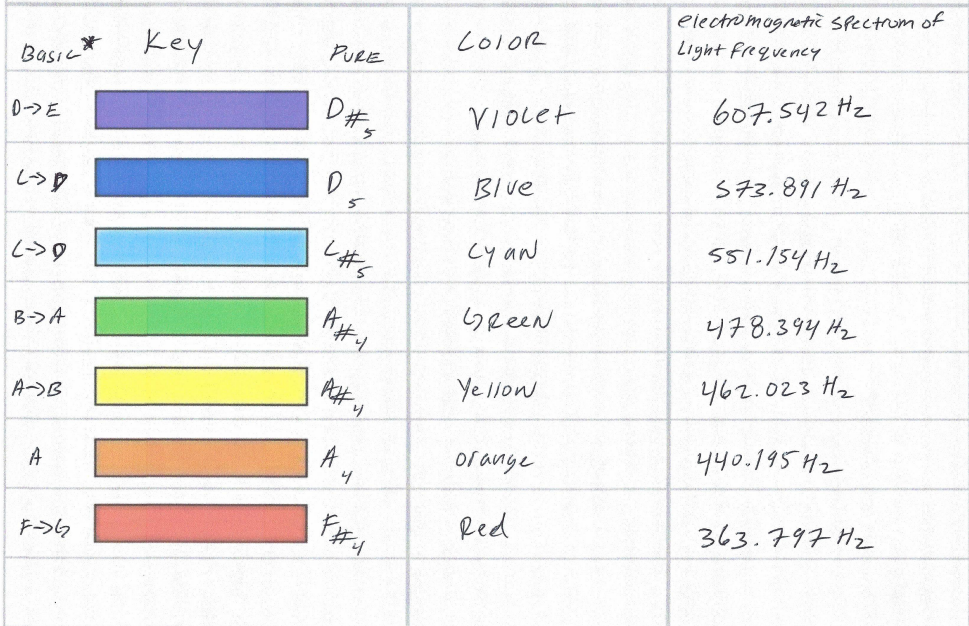 Basic* Key PURE COLOR electromagnetic spectrum of Light frequency
D→E D#5 Violet 607.542 Hz
C→D D5 Blue 573.891 Hz
C→D C#5 Cyan 551.154 Hz
B→A A#4 GReeN 478.394 Hz
A→B A#4 Yellow 462.023 Hz
A A4 orange 440.195 Hz
F→G F#4 Red 363.797 Hz